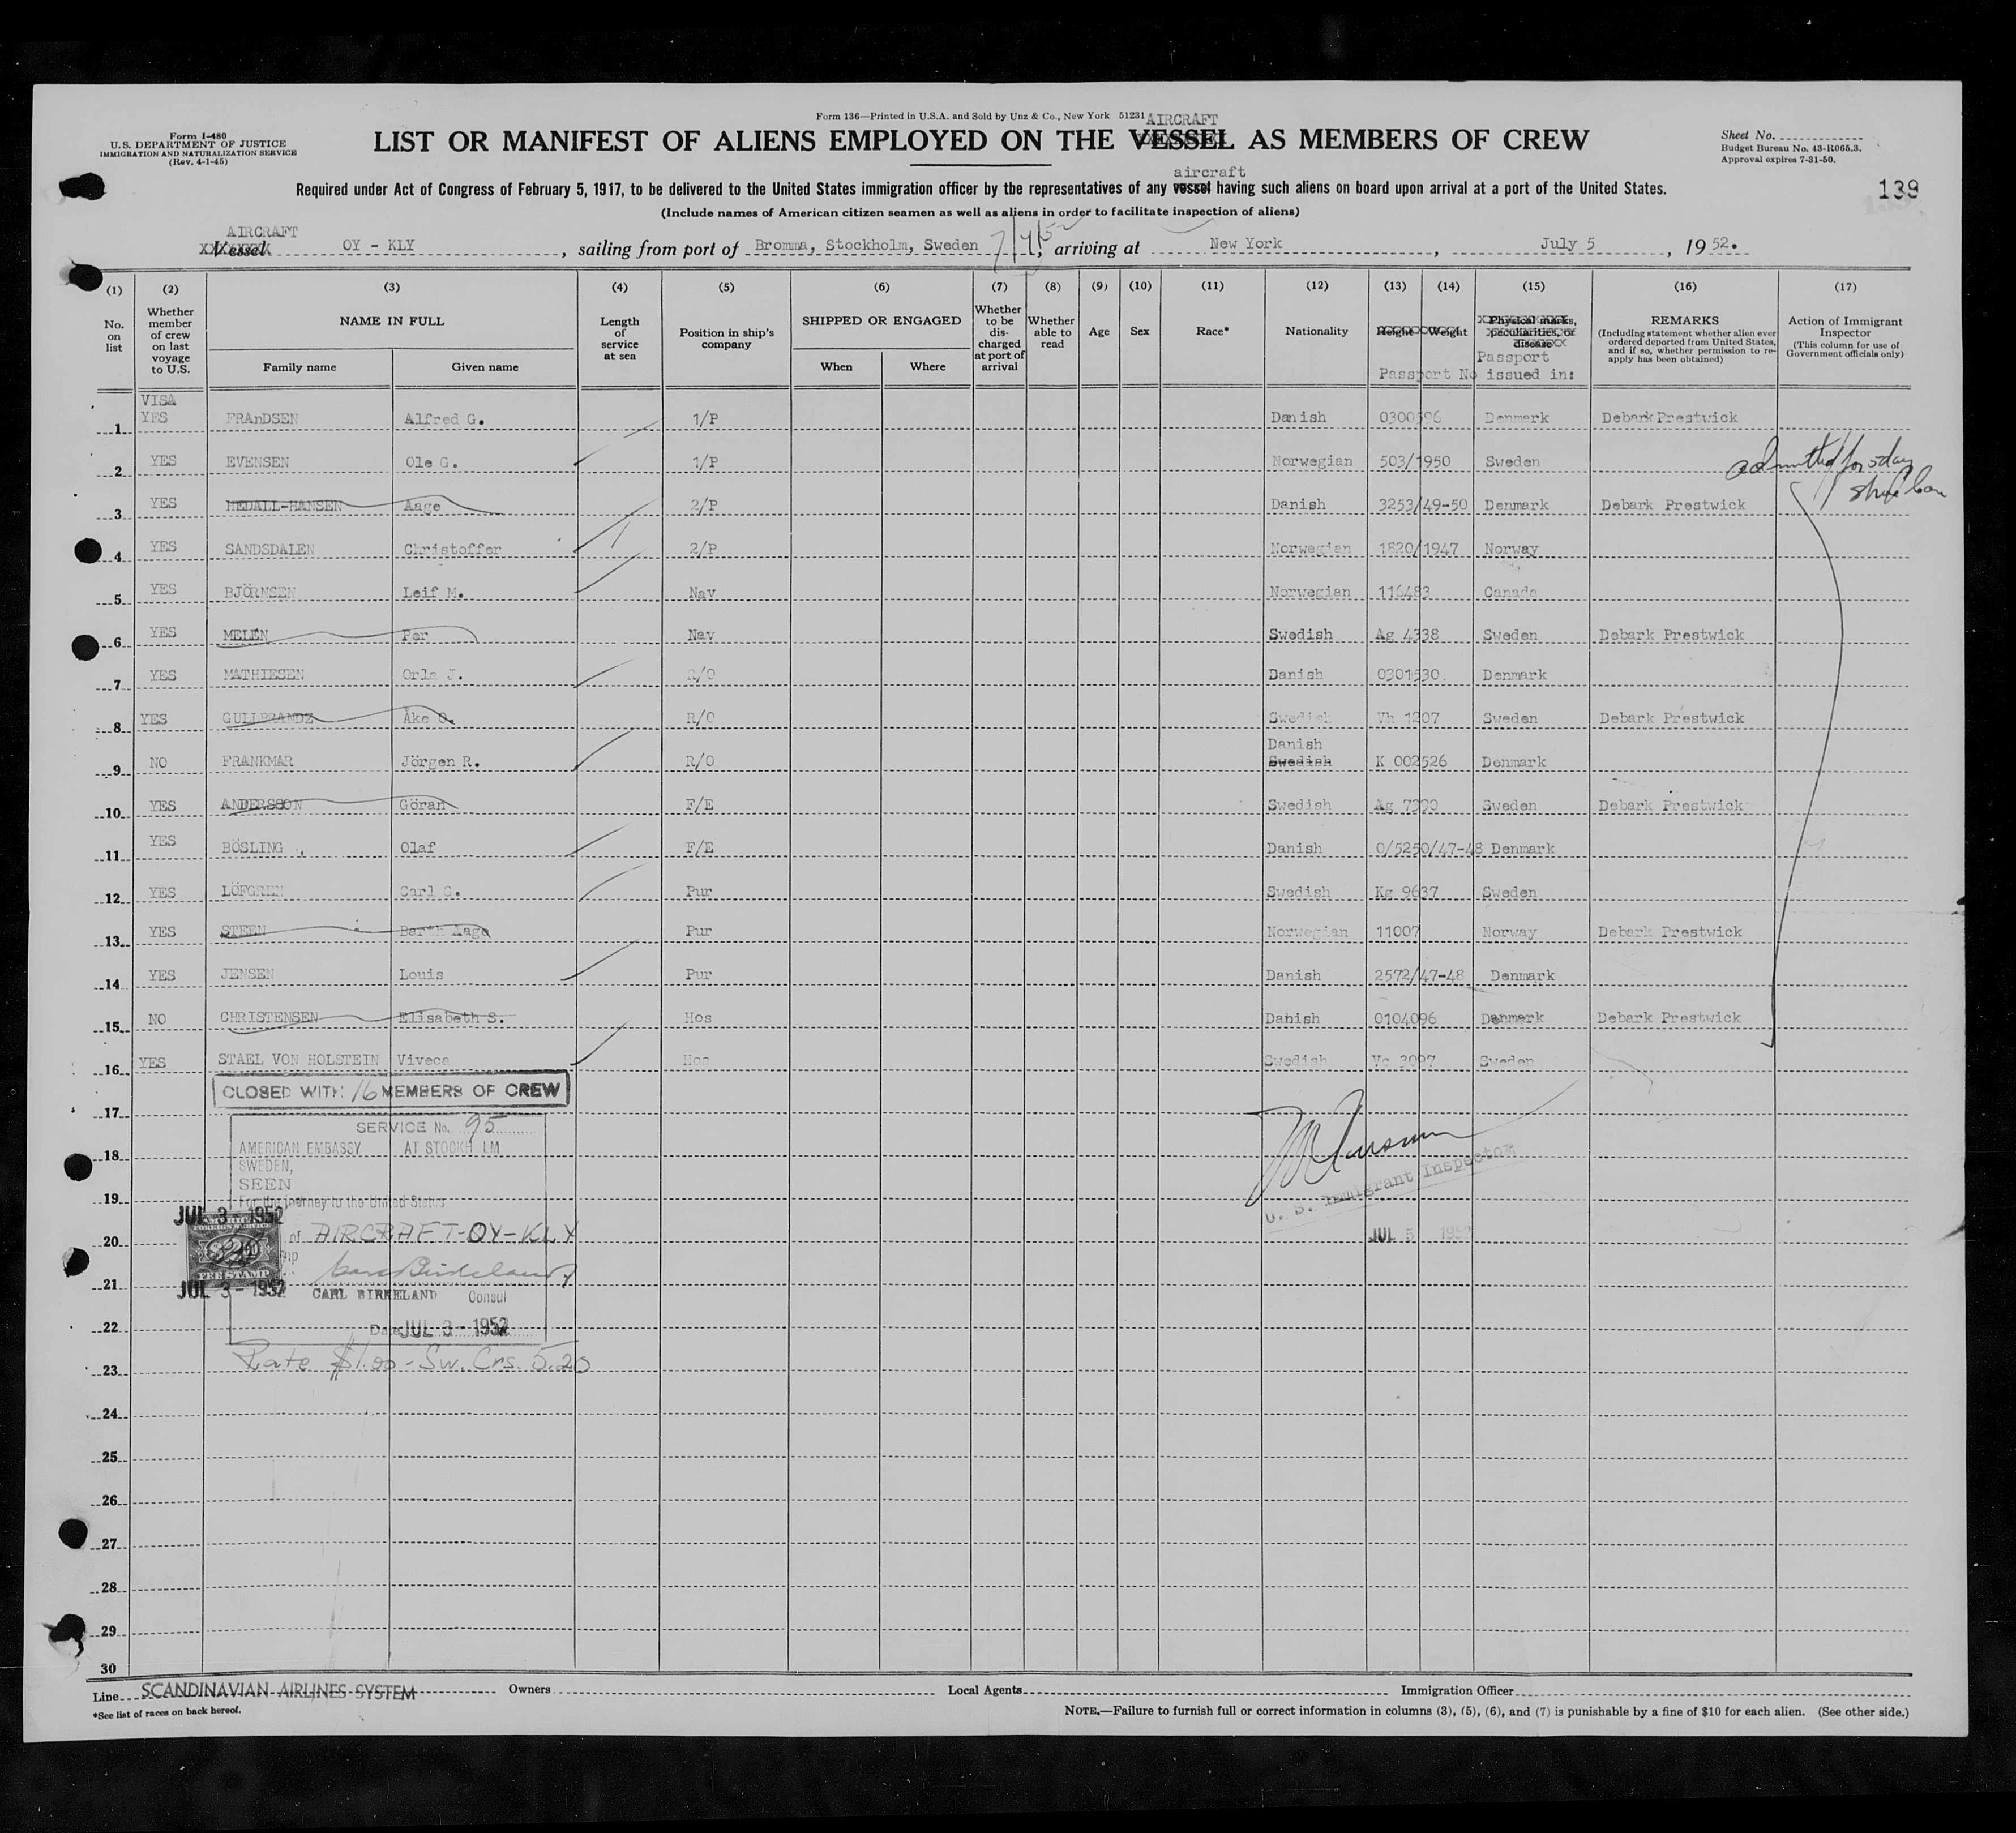 Form 136—Printed in U.S.A. and Sold by Unz & Co., New York 51231
Form I-480
U.S. DEPARTMENT OF JUSTICE
IMMIGRATION AND NATURALIZATION SERVICE
(Rev. 4-1-45)
AIRCRAFT
LIST OR MANIFEST OF ALIENS EMPLOYED ON THE VESSEL AS MEMBERS OF CREW
Sheet No.
Budget Bureau No. 43-R065.3.
Approval expires 7-31-50.
aircraft
Required under Act of Congress of February 5, 1917, to be delivered to the United States immigration officer by the representatives of any vessel having such aliens on board upon arrival at a port of the United States.
139
(Include names of American citizen seamen as well as aliens in order to facilitate inspection of aliens)
AIRCRAFT
Vessel OY - KLY, sailing from port of Bromma, Stockholm, Sweden 7/4/52, arriving at New York, July 5, 1952.
(1) (2) (3) (4) (5) (6) (7) (8) (9) (10) (11) (12) (13) (14) (15) (16) (17)
No. on list
Whether member of crew on last voyage to U.S.
NAME IN FULL
Family name Given name
Length of service at sea
Position in ship's company
SHIPPED OR ENGAGED
When Where
Whether to be discharged at port of arrival
Whether able to read
Age
Sex
Race*
Nationality
Height Weight
Passport No
Physical marks, peculiarities, or disease
Passport issued in:
REMARKS
(Including statement whether alien ever ordered deported from United States, and if so, whether permission to reapply has been obtained)
Action of Immigrant Inspector
(This column for use of Government officials only)
VISA
1 YES FRAnDSEN Alfred G. 1/P Danish 0300596 Denmark Debark Prestwick
2 YES EVENSEN Ole G. 1/P Norwegian 503/1950 Sweden
admitted for 5 day
3 YES HEDALL-HANSEN Aage 2/P Danish 3253/49-50 Denmark Debark Prestwick
4 YES SANDSDALEN Christoffer 2/P Norwegian 1820/1947 Norway
5 YES BJÖRNSEN Leif M. Nav Norwegian 116483 Canada
6 YES MELÉN Per Nav Swedish Ag 4338 Sweden Debark Prestwick
7 YES MATHIESEN Orla J. R/O Danish 0301530 Denmark
8 YES GULLBRANDZ Åke O. R/O Swedish Vh 1207 Sweden Debark Prestwick
Danish
9 NO FRANKMAR Jörgen R. R/O Swedish K 002526 Denmark
10 YES ANDERSSON Göran F/E Swedish Ag Sweden Debark Prestwick
11 YES BÖSLING Olaf F/E Danish 0/5250/47-48 Denmark
12 YES LÖFGREN Carl G. Pur Swedish Kg 9637 Sweden
13 YES STEEN Barth Aage Pur Norwegian 11007 Norway Debark Prestwick
14 YES JENSEN Louis Pur Danish 2572/47-48 Denmark
15 NO CHRISTENSEN Elisabeth S. Hos Danish 0104096 Danmark Debark Prestwick
16 YES STAEL VON HOLSTEIN Viveca Hos Swedish Vc 3097 Sweden
CLOSED WITH 16 MEMBERS OF CREW
17
SERVICE No. 95
AMERICAN EMBASSY AT STOCKHOLM
18
SWEDEN,
SEEN
U. S. Immigrant Inspector
19
For the journey to the United States
JUL 3 - 1952
20
of AIRCRAFT-OY-KLY
JUL 5 1952
FEE STAMP
21
JUL 3 - 1952
CARL BIRKELAND Consul
22
Date JUL 3 - 1952
23
Rate $1.00 - Sw. Crs. 5.20
24
25
26
27
28
29
30
Line SCANDINAVIAN AIRLINES SYSTEM Owners Local Agents Immigration Officer
*See list of races on back hereof.
NOTE.—Failure to furnish full or correct information in columns (3), (5), (6), and (7) is punishable by a fine of $10 for each alien. (See other side.)